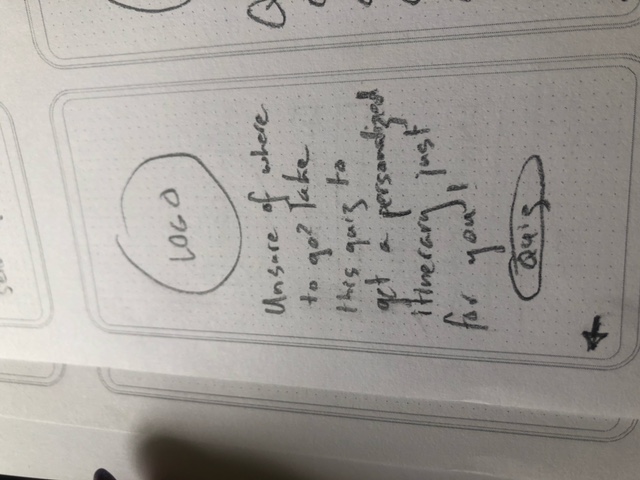 LOGO
Unsure of where
to go? Take
this quiz to
get a personalized
itinerary just
for you!
Quiz
Q